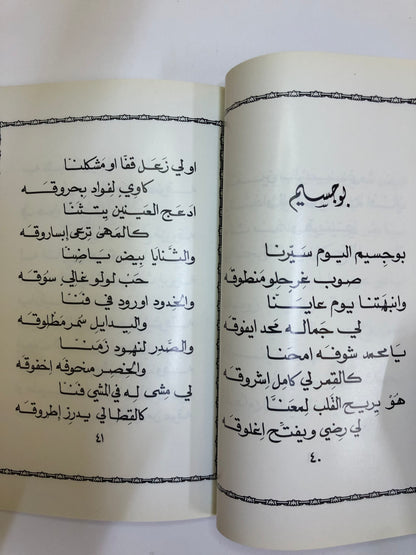 بوجسيم
بوجسيم اليوم سيّرنا
صوب غرٍ حلو منطوقه
وانبهتنا يوم عاينّا
لي جماله محد ايفوقه
يا محمد شوفه امحنّا
كالقمر لي كامل إشروقه
هو يريح القلب لمعنّا
لي رضي ويفتح إغلوقه
٤٠
اولي زعل قفا او مشكلنا
كاوي لفواد بحروقه
ادعج العينين يتثنّا
كالمهى ترعى إبساروقه
والثنايا بيض باضنا
حب لولو غالي سوقه
والخدود اورود في فننا
والبدايل سمر مطلوقه
والصدر لنهود زمنا
والخصر منحوفه إخفوقه
لي مشى له في المشي فنّا
كالقطا لي يدرز إطروقه
٤١